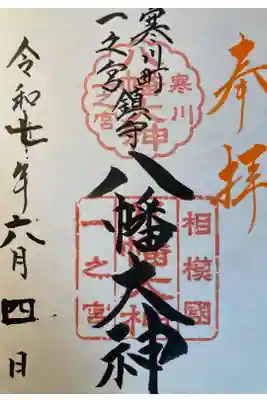 奉拝
寒川町
一之宮鎮守
八幡大神
令和七年六月四日
寒川
八幡大神
一之宮
相模國
八幡大神
一之宮